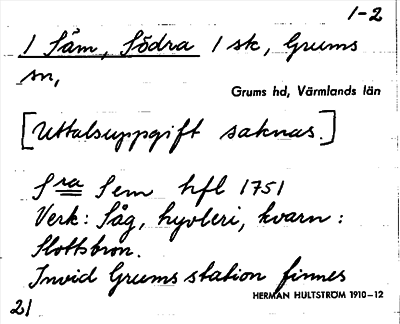 1-2
1 Säm, Södra 1 sk, Grums
sn,
Grums hd, Värmlands län
[Uttalsuppgift saknas.]
Sra Sem hfl 1751
Verk: Såg, hyvleri, kvarn:
Slottsbron.
Invid Grums station finnes
HERMAN HULTSTRÖM 1910-12
21